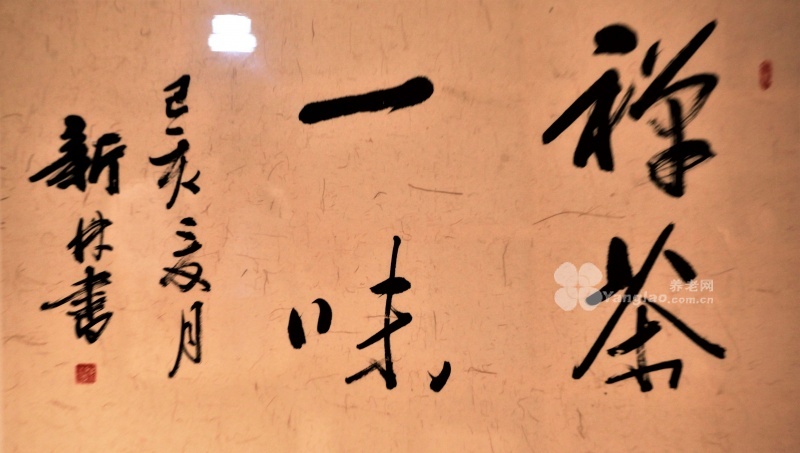 禅茶
一味
己亥夏月
新林书
养老网
Yanglao.com.cn